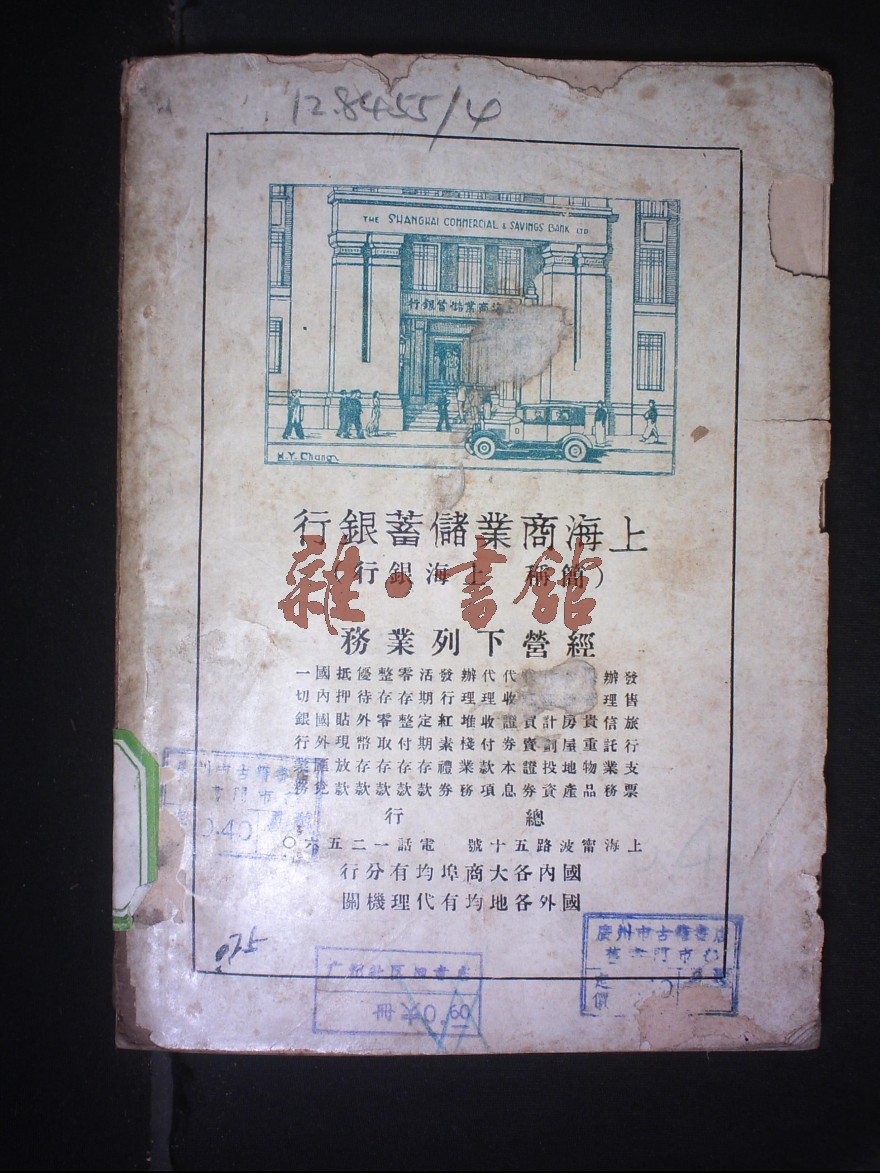 128455/4
THE SHANGHAI COMMERCIAL & SAVINGS BANK LTD
上海商業儲蓄銀行
N.Y. Chang
上海商業儲蓄銀行
(簡稱 上海銀行)
雜·書館
經營下列業務
發售旅行支票
辦理信託業務
貴重物品
房屋地產
計劃投資
買賣證券
代收證券本息
代理收付款項
辦理堆棧業務
發行紅素禮券
活期定期存款
零存整付存款
整存零取存款
優待外幣存款
抵押貼現放款
國內國外匯兌
一切銀行業務
總行
上海甯波路五十號 電話一二五六〇
國內各大商埠均有分行
國外各地均有代理機關
0.40
075
册 0.60
廣州市古籍書店
門市
定價